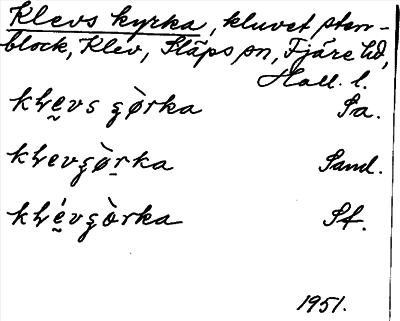 Klevs kyrka, kluvet sten-
block, Klev, Släps sn, Fjäre hd,
Hall. l.
kλe̮vs ʒòrka Sa.
kλevʒòr̠ka Sand.
kλé̮vʒòrka Sf.
1951.